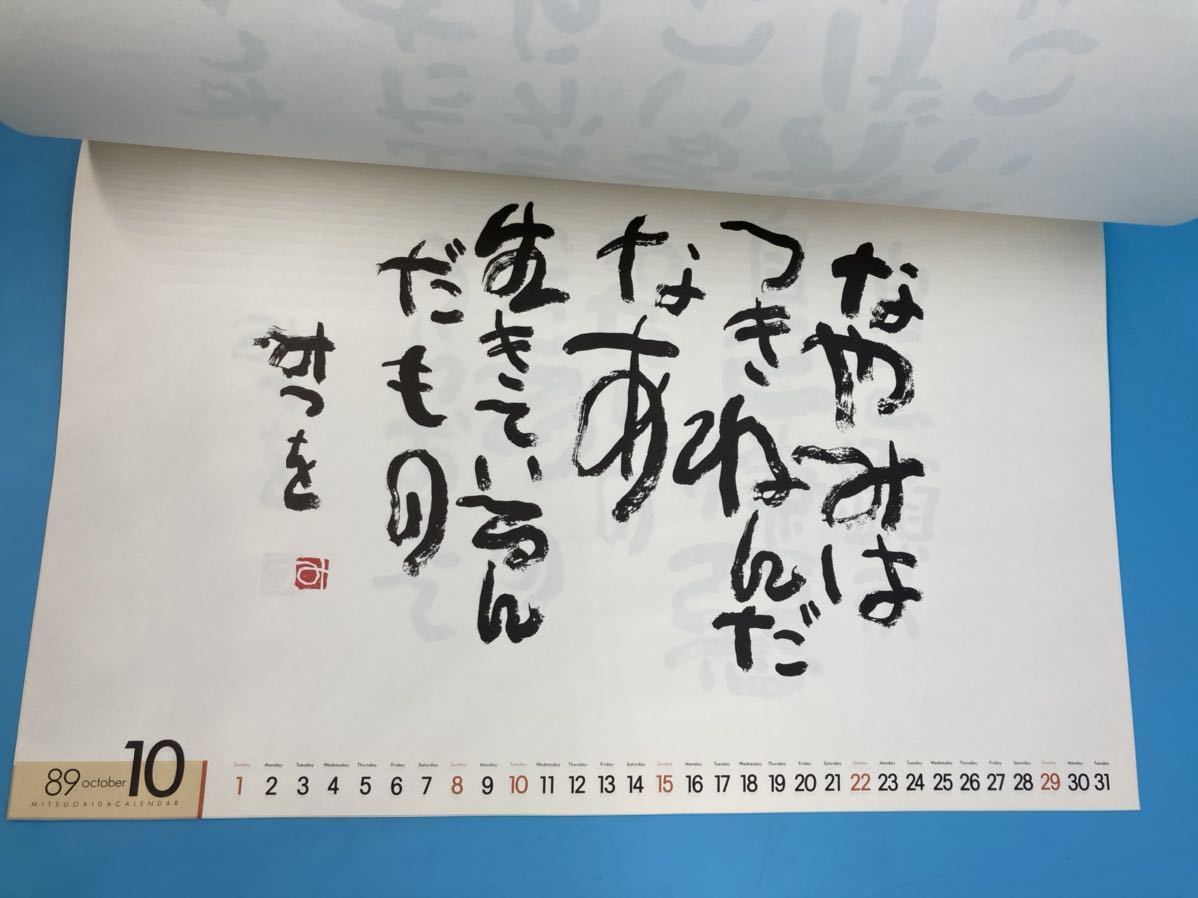 なやみは
つきねんだ
なあ
生きているん
だもの
みつを
み
89 october 10
MITSUOAIDACALENDAR
Sunday Monday Tuesday Wednesday Thursday Friday Saturday Sunday Monday Tuesday Wednesday Thursday Friday Saturday Sunday Monday Tuesday Wednesday Thursday Friday Saturday Sunday Monday Tuesday Wednesday Thursday Friday Saturday Sunday Monday Tuesday
1 2 3 4 5 6 7 8 9 10 11 12 13 14 15 16 17 18 19 20 21 22 23 24 25 26 27 28 29 30 31